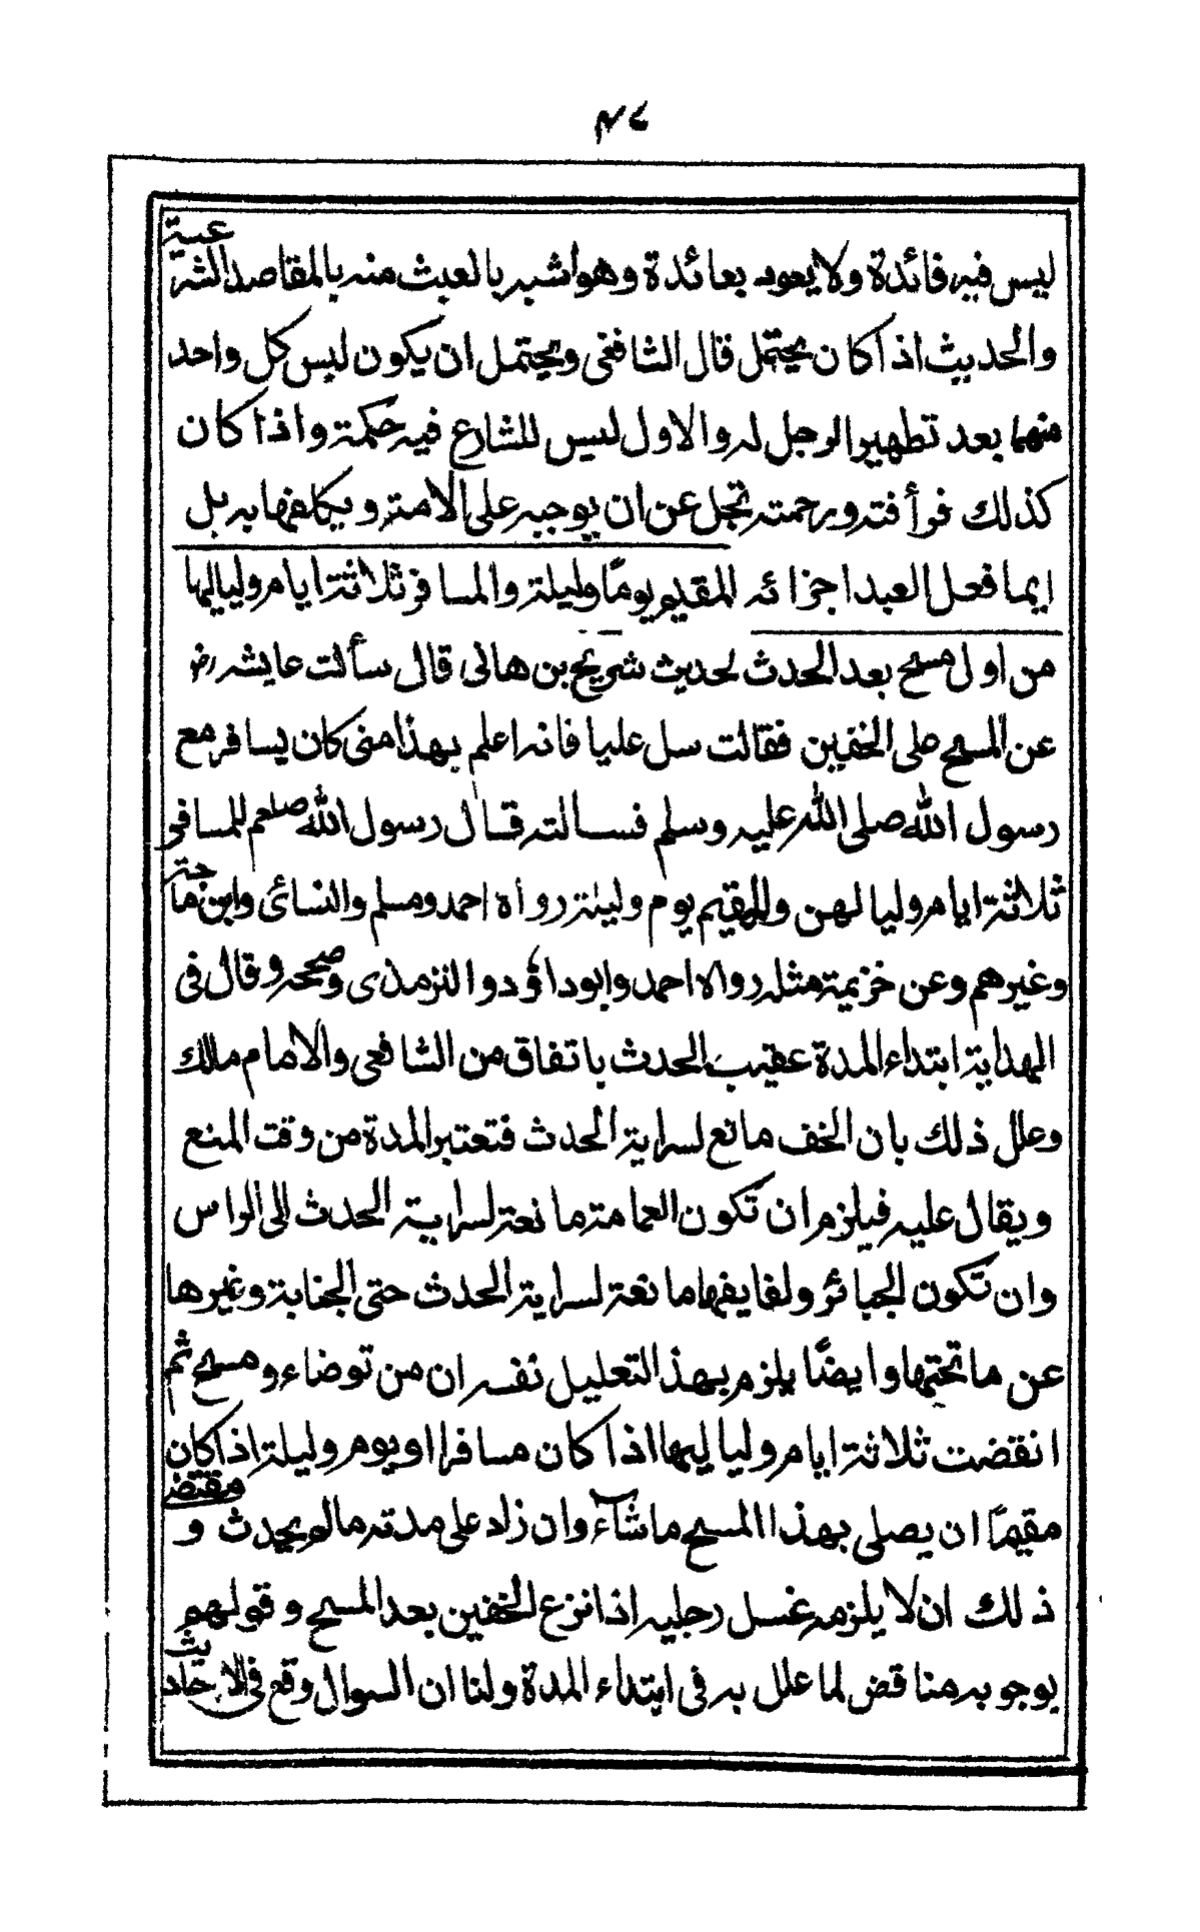 ۴۷
ليس فيه فائدة ولا يعود بعائدة وهو اشبه بالعبث منه بالمقاصد الشرعية
والحديث اذا كان يحتمل قال الشافعى ويحتمل ان يكون لبس كل واحد
منهما بعد تطهير الرجل له والاول ليس للشارع فيه حكمة واذا كان
كذلك فرأفته ورحمته تجل عن ان يوجبه على الامة ويكلفها به بل
ايما فعل العبد اجزائه المقيم يومًا وليلة والمسافر ثلاثة ايام ولياليها
من اول مسح بعد الحدث لحديث شريح بن هانى قال سألت عايشه رض
عن المسح على الخفين فقالت سل عليا فانه اعلم بهذا منى كان يسافر مع
رسول الله صلى الله عليه وسلم فسالته قال رسول الله صلعم للمسافر
ثلاثة ايام وليالهن وللمقيم يوم وليلة رواه احمد ومسلم والنسائى وابن ماجة
وغيرهم وعن خزيمة مثله رواه احمد وابوداؤد والترمذى وصححه وقال فى
الهداية ابتداء المدة عقيب الحدث باتفاق من الشافعى والامام مالك
وعلل ذلك بان الخف مانع لسراية الحدث فتعتبر المدة من وقت المنع
ويقال عليه فيلزم ان تكون العمامة مانعة لسراية الحدث الى الراس
وان تكون الجبائر ولفايفها مانعة لسراية الحدث حتى الجنابة وغيرها
عن ما تحتها وايضًا يلزم بهذا التعليل نفسه ان من توضاء ومسح ثم
انقضت ثلاثة ايام ولياليها اذا كان مسافرا او يوم وليلة اذا كان
مقيمًا ان يصلى بهذا المسح ما شاء وان زاد على مدته مالم يحدث و مقتضى
ذلك ان لا يلزمه غسل رجليه اذا نزع الخفين بعد المسح وقولهم
بوجوبه مناقض لما علل به فى ابتداء المدة ولنا ان السوال وقع فى الاحاديث